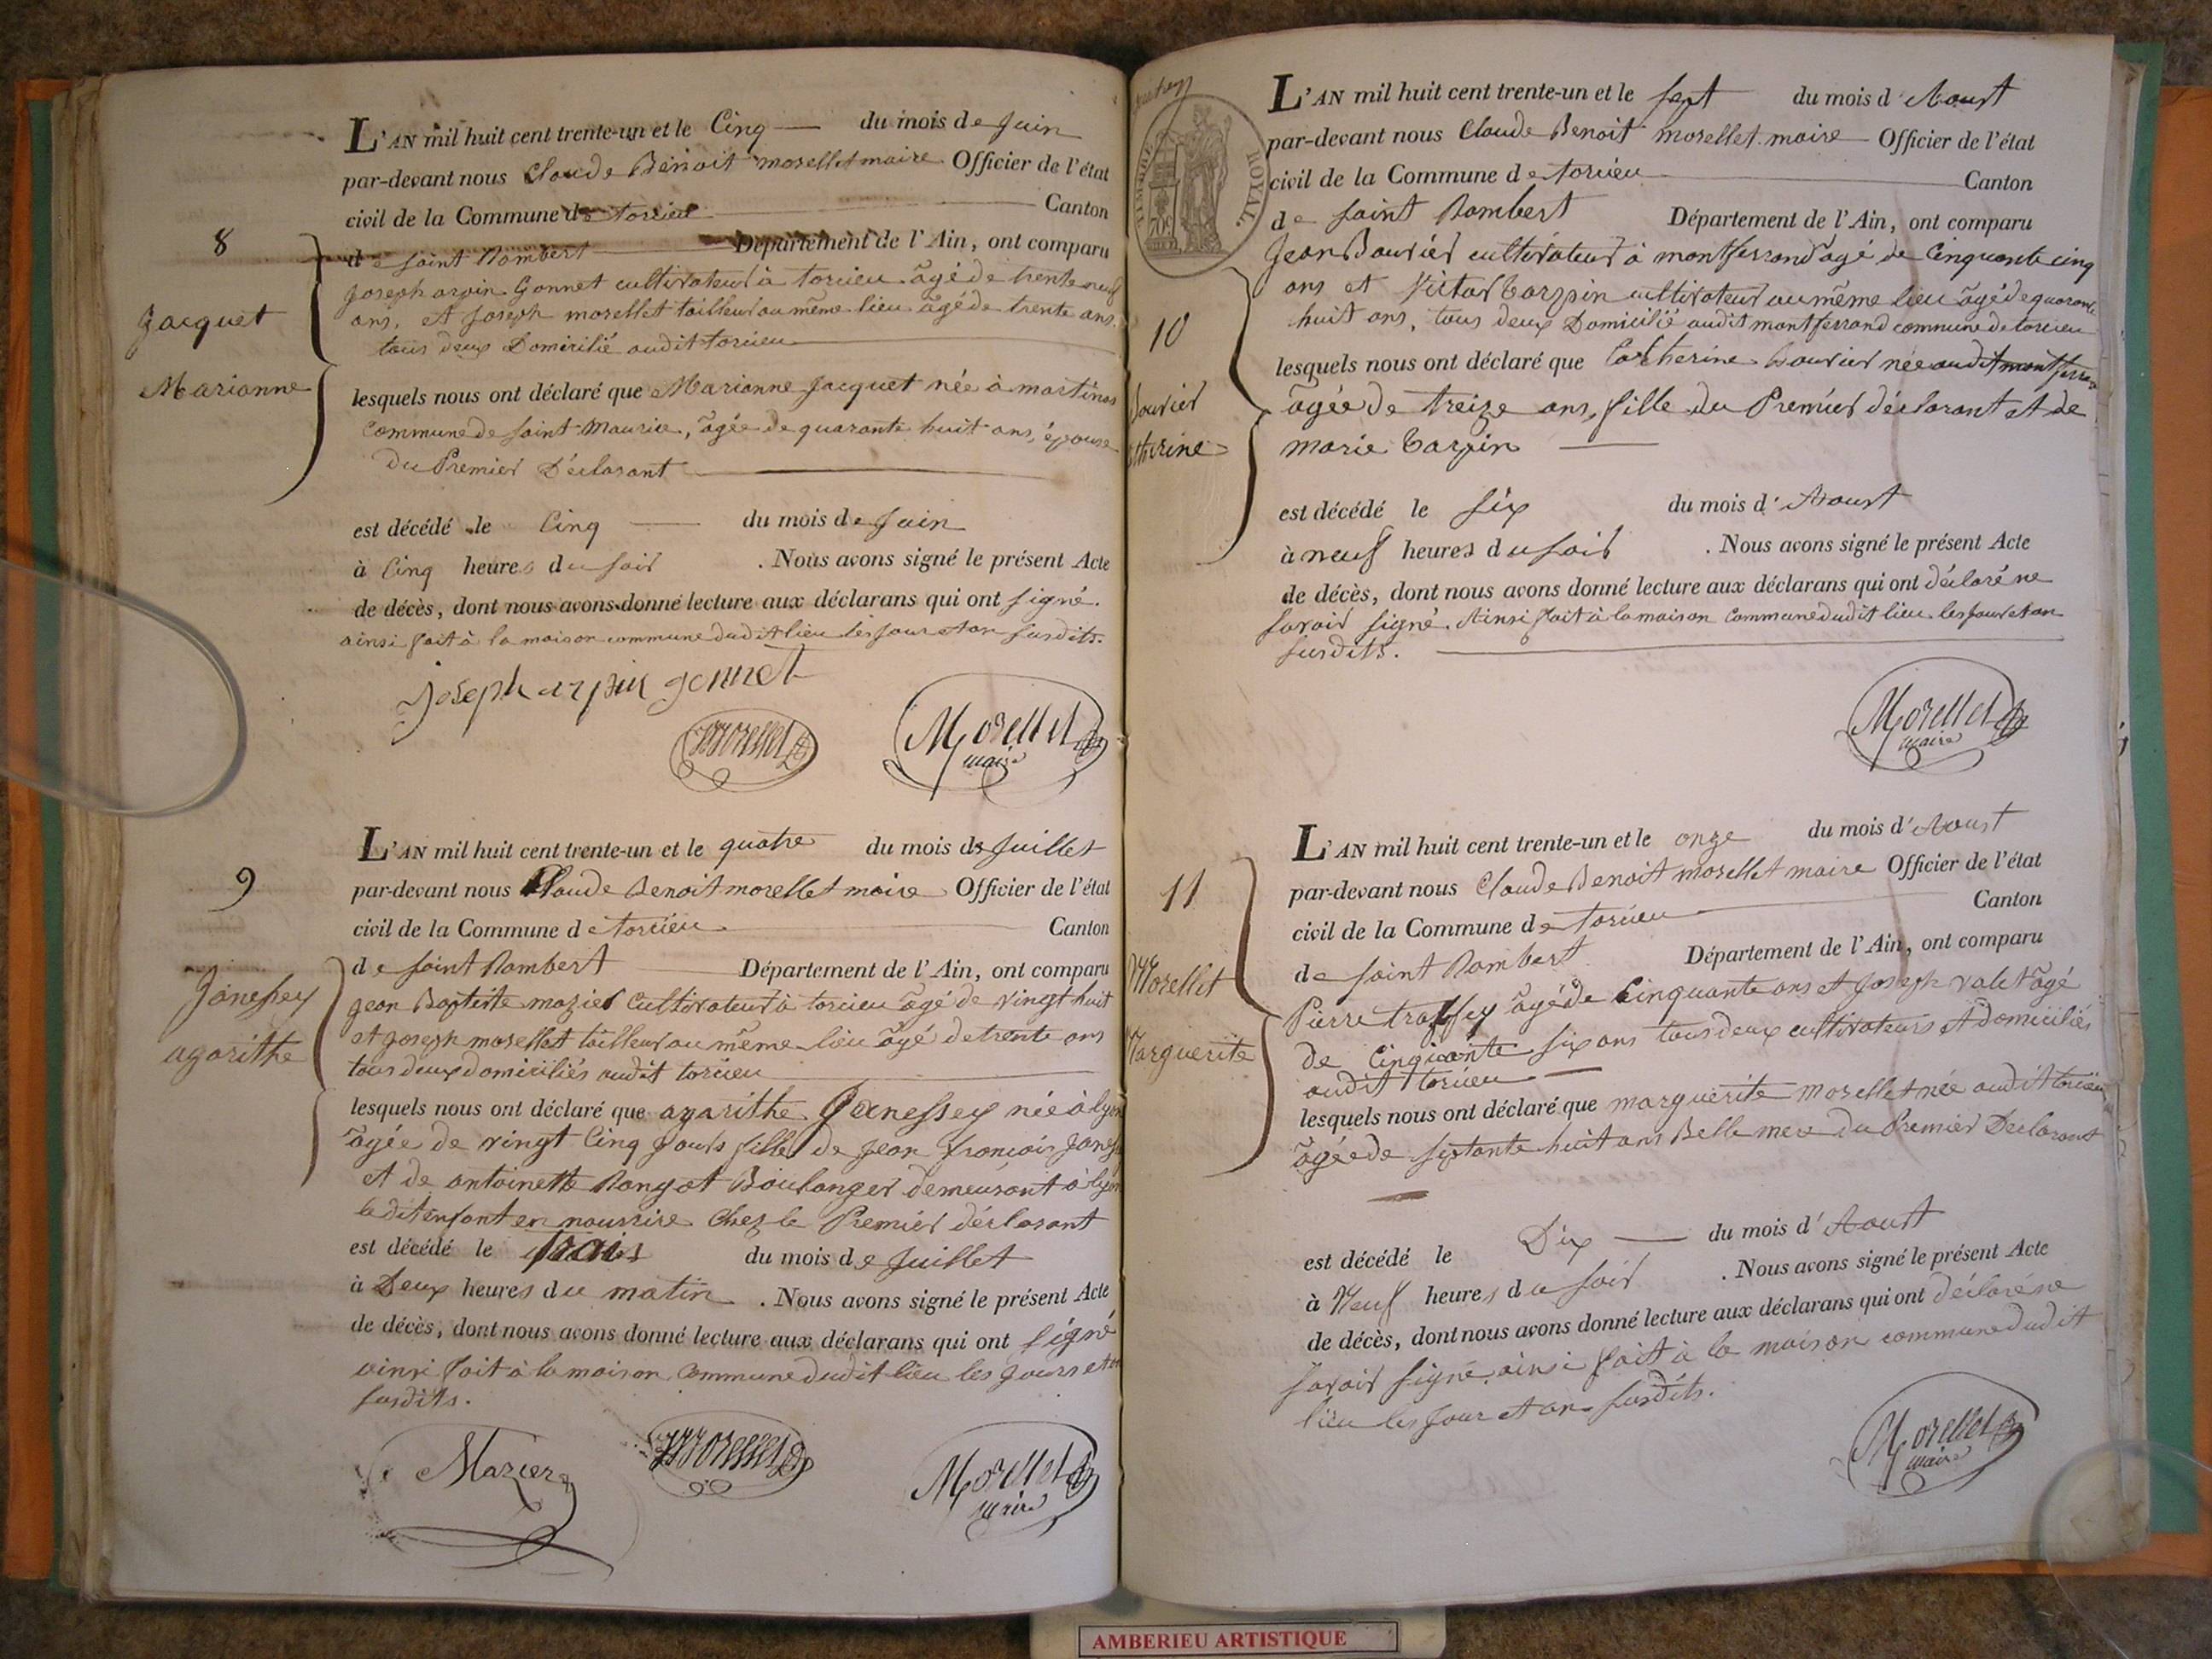 8
Jacquet
Marianne
L'AN mil huit cent trente-un et le Cinq du mois de Juin
par-devant nous Claude Benoit morellet maire Officier de l'état
civil de la Commune de torcieu Canton
de saint Rambert Département de l'Ain, ont comparu
Joseph arpin Gonnet cultivateur à torcieu âgé de trente neuf
ans, et Joseph morellet tailleur au même lieu âgé de trente ans.
tous deux Domicilié audit torcieu
lesquels nous ont déclaré que Marianne Jacquet née à martinas
commune de saint Maurice, âgée de quarante huit ans, épouse
du Premier Déclarant
est décédé le Cinq du mois de Juin
à Cinq heures du soir . Nous avons signé le présent Acte
de décès, dont nous avons donné lecture aux déclarans qui ont signé.
ainsi fait à la maison commune dudit lieu les jour et an susdits.
Joseph arpin gonnet
Morellet
Morellet
maire
9
Janessey
agarithe
L'AN mil huit cent trente-un et le quatre du mois de Juillet
par-devant nous Claude Benoit morellet maire Officier de l'état
civil de la Commune de torcieu Canton
de saint Rambert Département de l'Ain, ont comparu
jean Baptiste mazier Cultivateur à torcieu âgé de vingt huit
et Joseph morellet tailleur au même lieu âgé de trente ans
tous deux domiciliés audit torcieu
lesquels nous ont déclaré que agarithe Janessey née à lyon
âgée de vingt Cinq jours fille de Jean françois
et de antoinette Rongot Boulanger demeurant à lyon
ledit enfant en nourrire Chez le Premier déclarant
est décédé le trois du mois de Juillet
à Deux heures du matin . Nous avons signé le présent Acte
de décès, dont nous avons donné lecture aux déclarans qui ont signé
ainsi fait à la maison Commune dudit lieu les jours et an
susdits.
Mazier
Morellet
Morellet
maire
TIMBRE ROYAL
10
L'AN mil huit cent trente-un et le sept du mois d'Aoust
par-devant nous Claude Benoit morellet maire Officier de l'état
civil de la Commune de torcieu Canton
de saint Rambert Département de l'Ain, ont comparu
Jean Bouvier cultivateur à montferrand âgé de Cinquante cinq
ans et Victor Carpin cultivateur au même lieu âgé de quarante
huit ans, tous deux Domicilié audit montferrand commune de torcieu
lesquels nous ont déclaré que Catherine Bouvier née audit montferrand
âgée de treize ans, fille du Premier déclarant et de
marie Carpin
est décédé le six du mois d'Aoust
à neuf heures du soir . Nous avons signé le présent Acte
de décès, dont nous avons donné lecture aux déclarans qui ont déclaré ne
savoir signé. Ainsi fait à la maison Commune dudit lieu les jour et an
susdits.
Morellet
maire
11
Morellet
Marguerite
L'AN mil huit cent trente-un et le onze du mois d'Aoust
par-devant nous Claude Benoit morellet maire Officier de l'état
civil de la Commune de torcieu Canton
de saint Rambert Département de l'Ain, ont comparu
Pierre âgé de Cinquante ans et Joseph valet âgé
de Cinquante six ans tous deux cultivateurs et domiciliés
audit torcieu
lesquels nous ont déclaré que marguerite morellet née audit torcieu
âgée de septante huit ans Belle mere du Premier Declarant
est décédé le Dix du mois d'Aoust
à Neuf heures du soir . Nous avons signé le présent Acte
de décès, dont nous avons donné lecture aux déclarans qui ont déclaré ne
savoir signé ainsi fait à la maison commune dudit
lieu les jour et an susdits.
Morellet
maire
AMBERIEU ARTISTIQUE